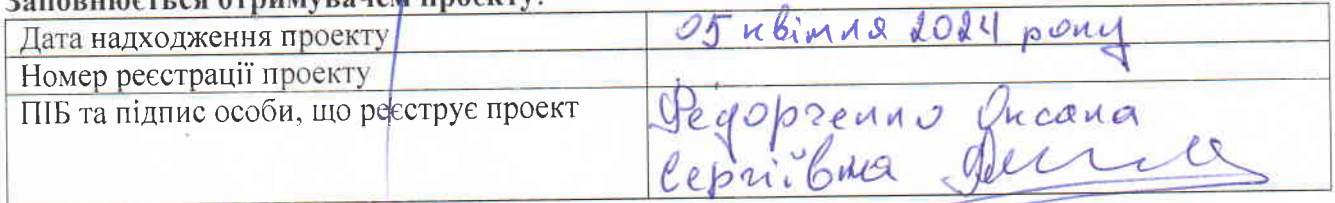 Заповнюється отримувачем проекту:
Дата надходження проекту 05 квітня 2024 року
Номер реєстрації проекту
ПІБ та підпис особи, що реєструє проект Федорченко Оксана
Сергіївна